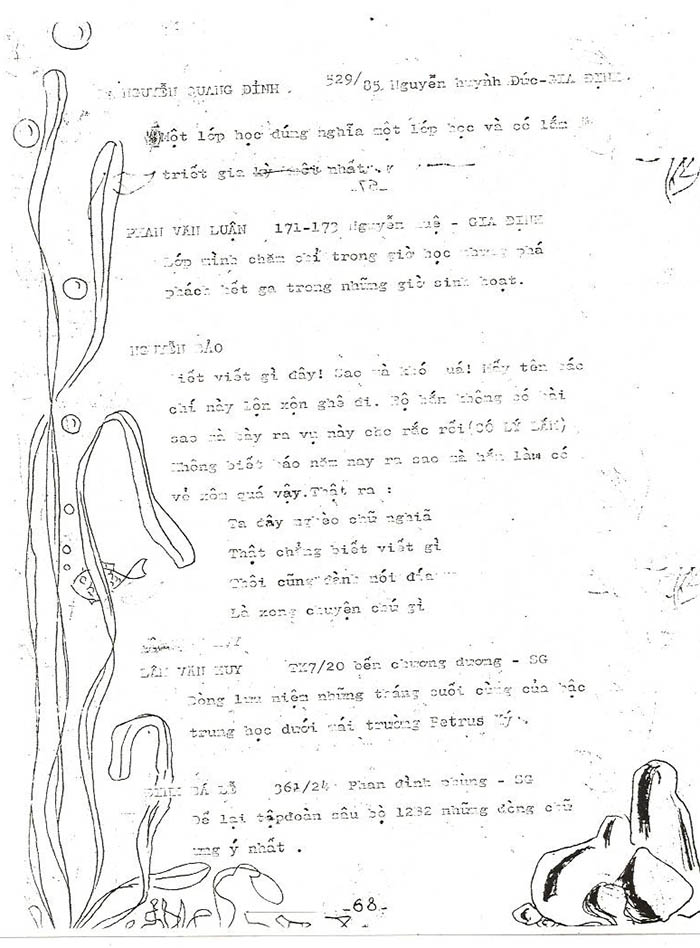 NGUYỄN QUANG ĐỈNH. 529/85 Nguyễn huỳnh Đức-GIA ĐỊNH.
Một lớp học đúng nghĩa một lớp học và có lắm
triết gia nhất.
PHAN VĂN LUẬN 171-173 Nguyễn Huệ - GIA ĐỊNH
Lớp mình chăm chỉ trong giờ học nhưng phá
phách hết ga trong những giờ sinh hoạt.
NGUYỄN BẢO
viết gì đây! Sao mà khó quá! Mấy tên các
chí này lộn xộn ghê đi. Bộ hắn không có bài
sao mà bày ra vụ này cho rắc rối(CÓ LÝ LẮM)
Không biết báo năm nay ra sao mà hắn làm có
vẻ xôm quá vậy.Thật ra :
Ta đây nghèo chữ nghiã
Thật chẳng biết viết gì
Thôi cũng đành nói
Là xong chuyện chứ gì
LÂM VĂN HUY TK7/20 bến chương dương - SG
Dòng lưu niệm những tháng cuối cùng của bậc
trung học dưới mái trường Petrus Ký.
BÁ LỄ 361/24 Phan đình phùng - SG
Để lại tậpđoàn sâu bọ 12B2 những dòng chữ
ưng ý nhất .
-68-